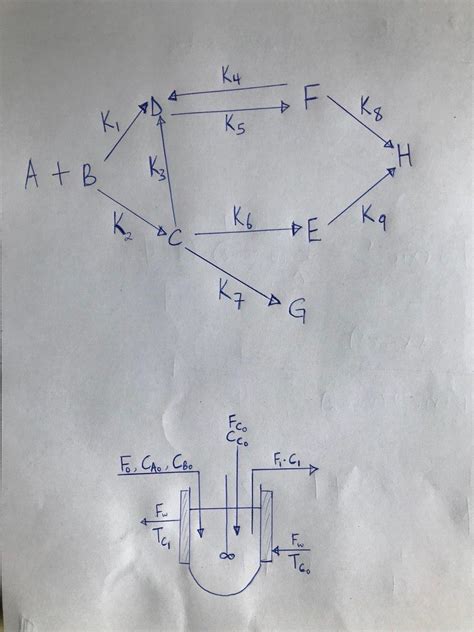 K4
D
F
K1
K5
K8
A + B
K3
H
K2
C
K6
E
K9
K7
G
Fc0
Cc0
F0, CA0, CB0
F1·C1
Fw
Tc1
∞
Fw
Tc0